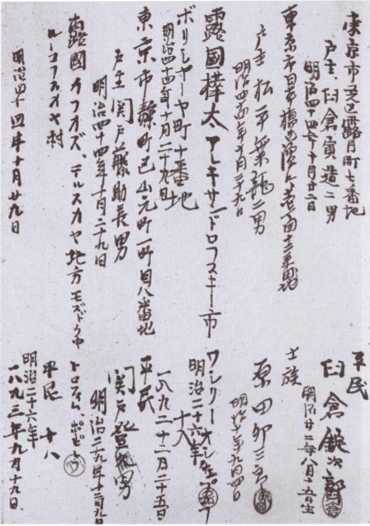 東京市芝区露月町七番地
平民
戸主 臼倉寅造二男
臼倉錠次郎
明治四十四年十月廿二日
明治廿二年八月十五日生
東京市日本橋区濱町
士族
戸主 松平
二男
原田卯三
明治四十四年十月二十九日
露國樺太アレキサンドロフスキー市
ワシリー
ボリシャーヤ町十番地
明治二十六年
十八
明治四十四年十月二十九日
一八九二年十一月二十五日
東京市麹町区山元町一町目八番地
平民
戸主 関戸藤助長男
関戸登
男
明治四十四年十月二十九日
明治二九年十二月九日
露國カフカズ、テルスカヤ地方モズドク市
トロフィム、ポポフ
ルーコフスカヤ村
平民 十八
明治四十四年十月廿九日
明治二十六年
一八九三年九月十九日